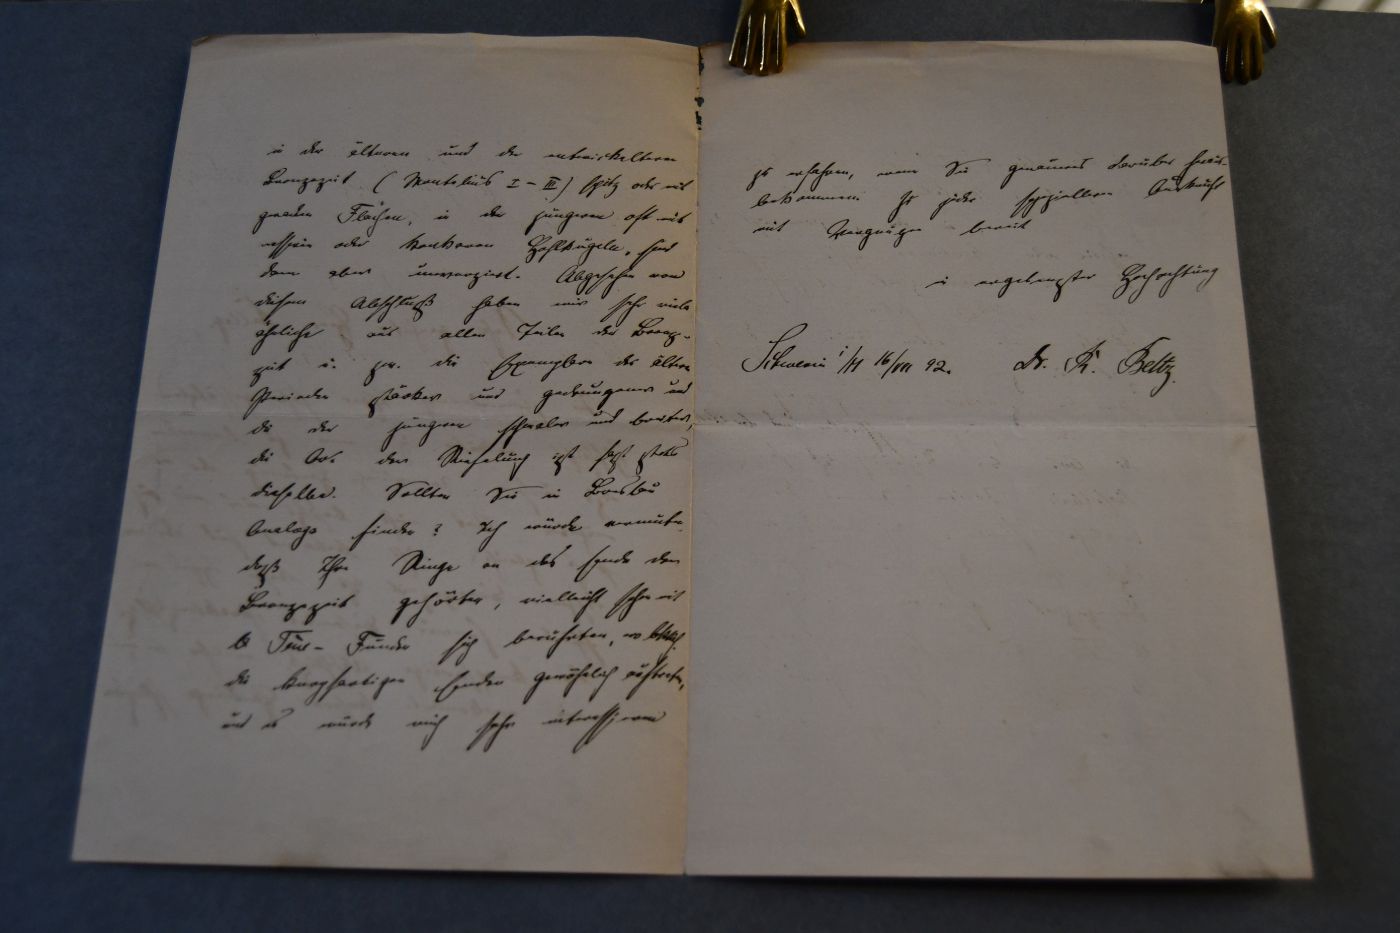 in der älteren und der entwickelteren
Bronzezeit (Montelius I–III) spitz oder mit
geraden Flächen, in der jüngeren oft mit
oder konkaven Hohlkugeln, sind
dann aber unverziert. Abgesehen von
diesem Abschluß haben wir sehr viele
ähnliche aus allen Teilen der Bronze-
zeit u. zw. die Exemplare der ältern
Perioden stärker und gedrungener und
die der jüngeren schmaler und breiter,
die Art der Riefelung ist fast stets
dieselbe. Sollten Sie in Breslau
Analoga finden? Ich würde vermuten,
daß Ihre Ringe an das Ende der
Bronzezeit gehörten, vielleicht schon mit
la Tène-Funden sich berührten, wo
die knopfartigen Enden gewöhnlich auftreten,
und es würde mich sehr interessieren
zu erfahren, wenn Sie genaueres darüber heraus-
bekommen. Zu jeder speziellern Auskunft
mit Vergnügen bereit
in ergebenster Hochachtung
Schwerin i/M 16/VII 92. Dr. R. Beltz